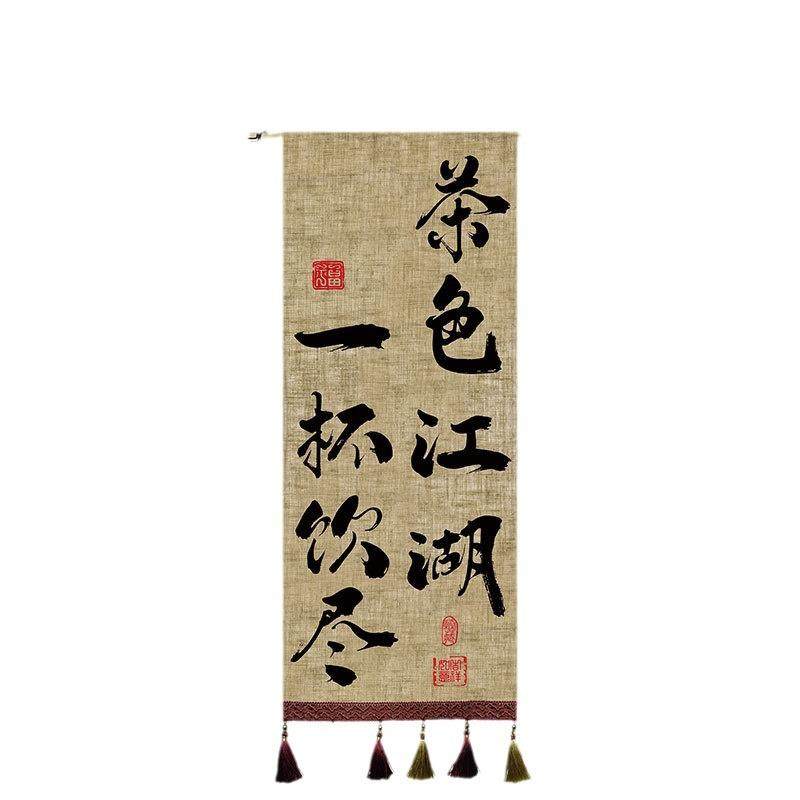 茶色江湖
一杯饮尽